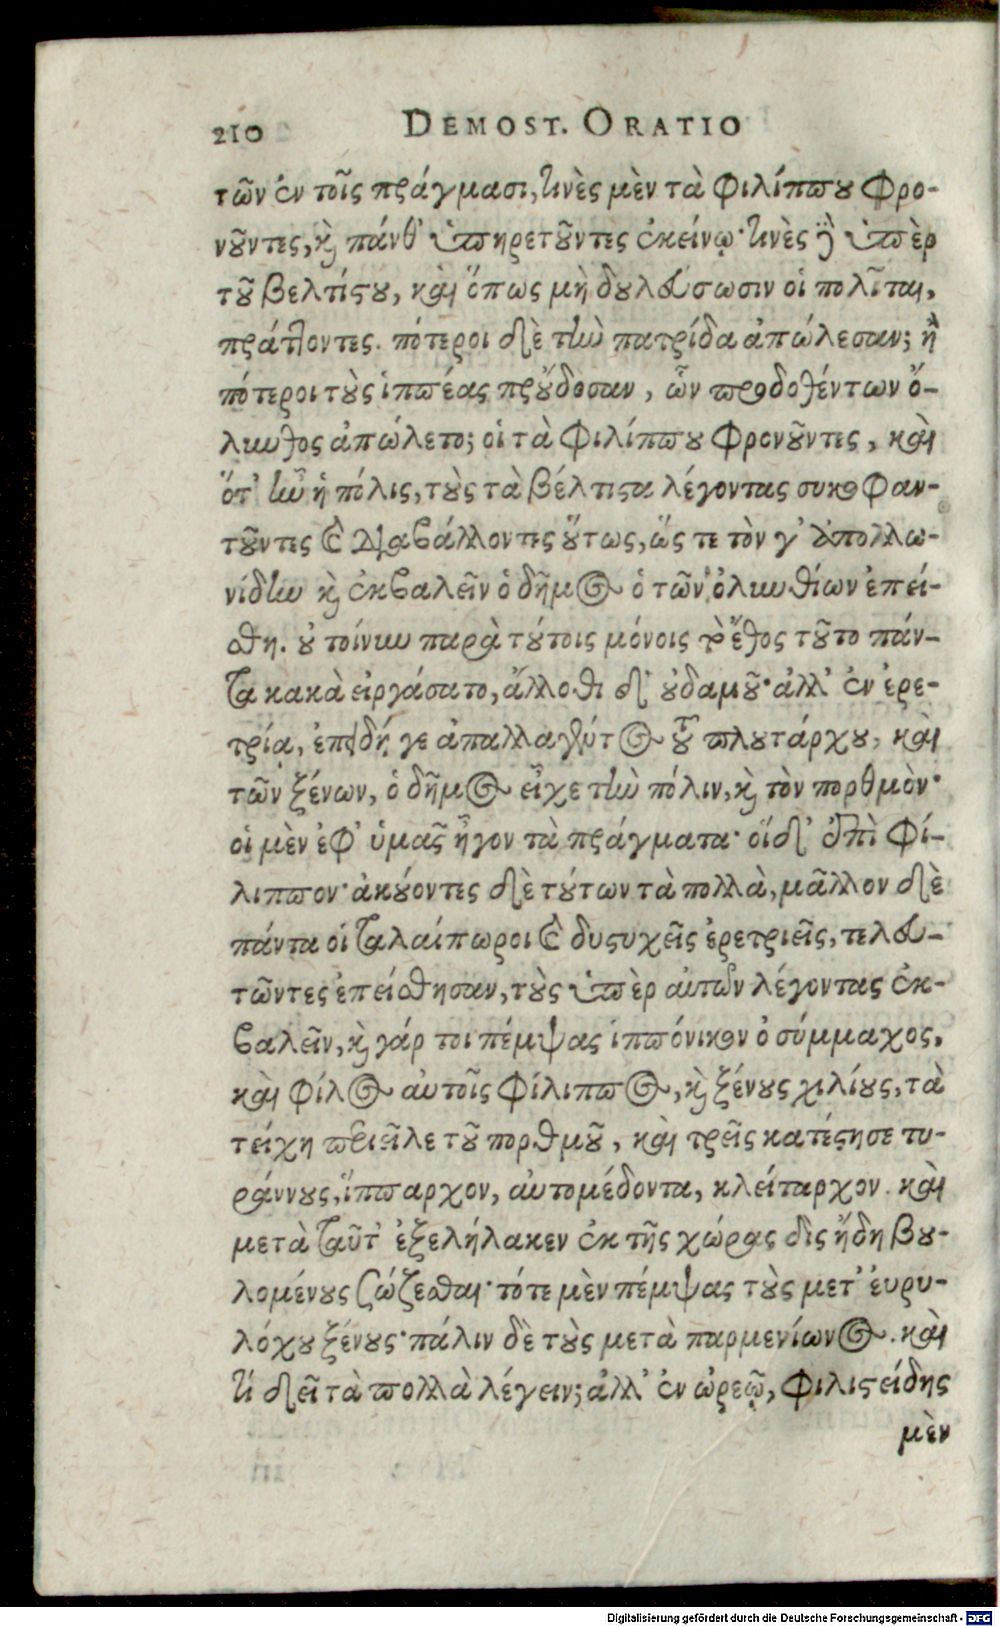 210 DEMOST. ORATIO
τῶν ἐν τοῖς πράγμασι, τινὲς μὲν τὰ φιλίππου φρο-
νοῦντες, καὶ πάνθ' ὑπηρετοῦντες ἐκείνῳ· τινὲς δὲ ὑπὲρ
τοῦ βελτίστου, καὶ ὅπως μὴ δουλεύσωσιν οἱ πολῖται,
πράττοντες. πότεροι δὲ τὴν πατρίδα ἀπώλεσαν; ἢ
πότεροι τοὺς ἱππέας προὔδοσαν, ὧν προδοθέντων ὄ-
λυνθος ἀπώλετο; οἱ τὰ φιλίππου φρονοῦντες, καὶ
ὅτ' ἦν ἡ πόλις, τοὺς τὰ βέλτιστα λέγοντας συκοφαν-
τοῦντες καὶ διαβάλλοντες οὕτως, ὥς τε τὸν γ' ἀπολλω-
νίδην καὶ ἐκβαλεῖν ὁ δῆμος ὁ τῶν ὀλυνθίων ἐπεί-
σθη. οὐ τοίνυν παρὰ τούτοις μόνοις τὸ ἔθος τοῦτο πάν-
τα κακὰ εἰργάσατο, ἄλλοθι δ' οὐδαμοῦ· ἀλλ' ἐν ἐρε-
τρίᾳ, ἐπειδή γε ἀπαλλαγέντος τοῦ πλουτάρχου, καὶ
τῶν ξένων, ὁ δῆμος εἶχε τὴν πόλιν, καὶ τὸν πορθμὸν·
οἱ μὲν ἐφ' ὑμᾶς ἦγον τὰ πράγματα· οἱ δ' ἐπὶ φί-
λιππον· ἀκούοντες δὲ τούτων τὰ πολλὰ, μᾶλλον δὲ
πάντα οἱ ταλαίπωροι καὶ δυστυχεῖς ἐρετριεῖς, τελευ-
τῶντες ἐπείσθησαν, τοὺς ὑπὲρ αὐτῶν λέγοντας ἐκ-
βαλεῖν, καὶ γάρ τοι πέμψας ἱππόνικον ὁ σύμμαχος,
καὶ φίλος αὐτοῖς φίλιππος, καὶ ξένους χιλίους, τὰ
τείχη περιεῖλε τοῦ πορθμοῦ, καὶ τρεῖς κατέστησε τυ-
ράννους, ἵππαρχον, αὐτομέδοντα, κλείταρχον. καὶ
μετὰ ταῦτ' ἐξελήλακεν ἐκ τῆς χώρας δὶς ἤδη βου-
λομένους σώζεσθαι· τότε μὲν πέμψας τοὺς μετ' εὐρυ-
λόχου ξένους· πάλιν δὲ τοὺς μετὰ παρμενίωνος. καὶ
τί δεῖ τὰ πολλὰ λέγειν; ἀλλ' ἐν ὠρεῷ, φιλιστείδης
μὲν
Digitalisierung gefördert durch die Deutsche Forschungsgemeinschaft - DFG